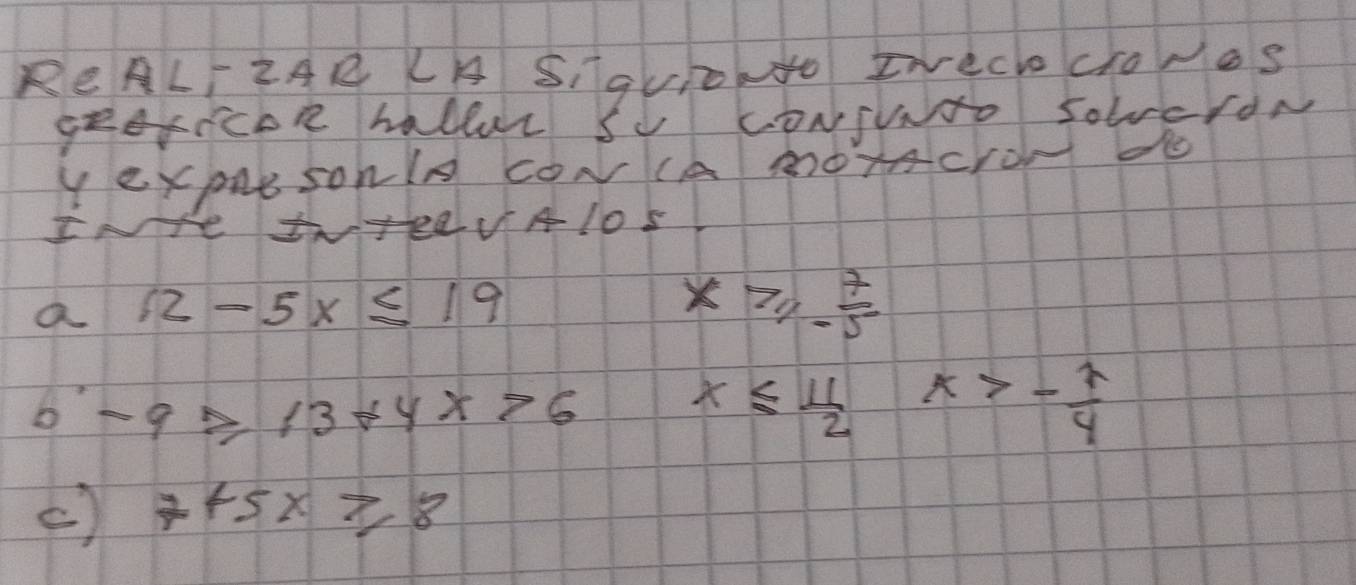 REALiZAR LA Siguionto Inecuociones
graficar hallar su conjunto solucion
y expresonla con la notacion de
Inte Intervalos.
a 12 - 5x ≤ 19 x ≥ - 7/5
b -9 ≥ 13 + 4x > 6 x ≤ 11/2 x > - 7/4
c) 7 + 5x ≥ 8